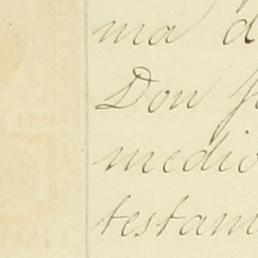 ma d
Don
medio
testam